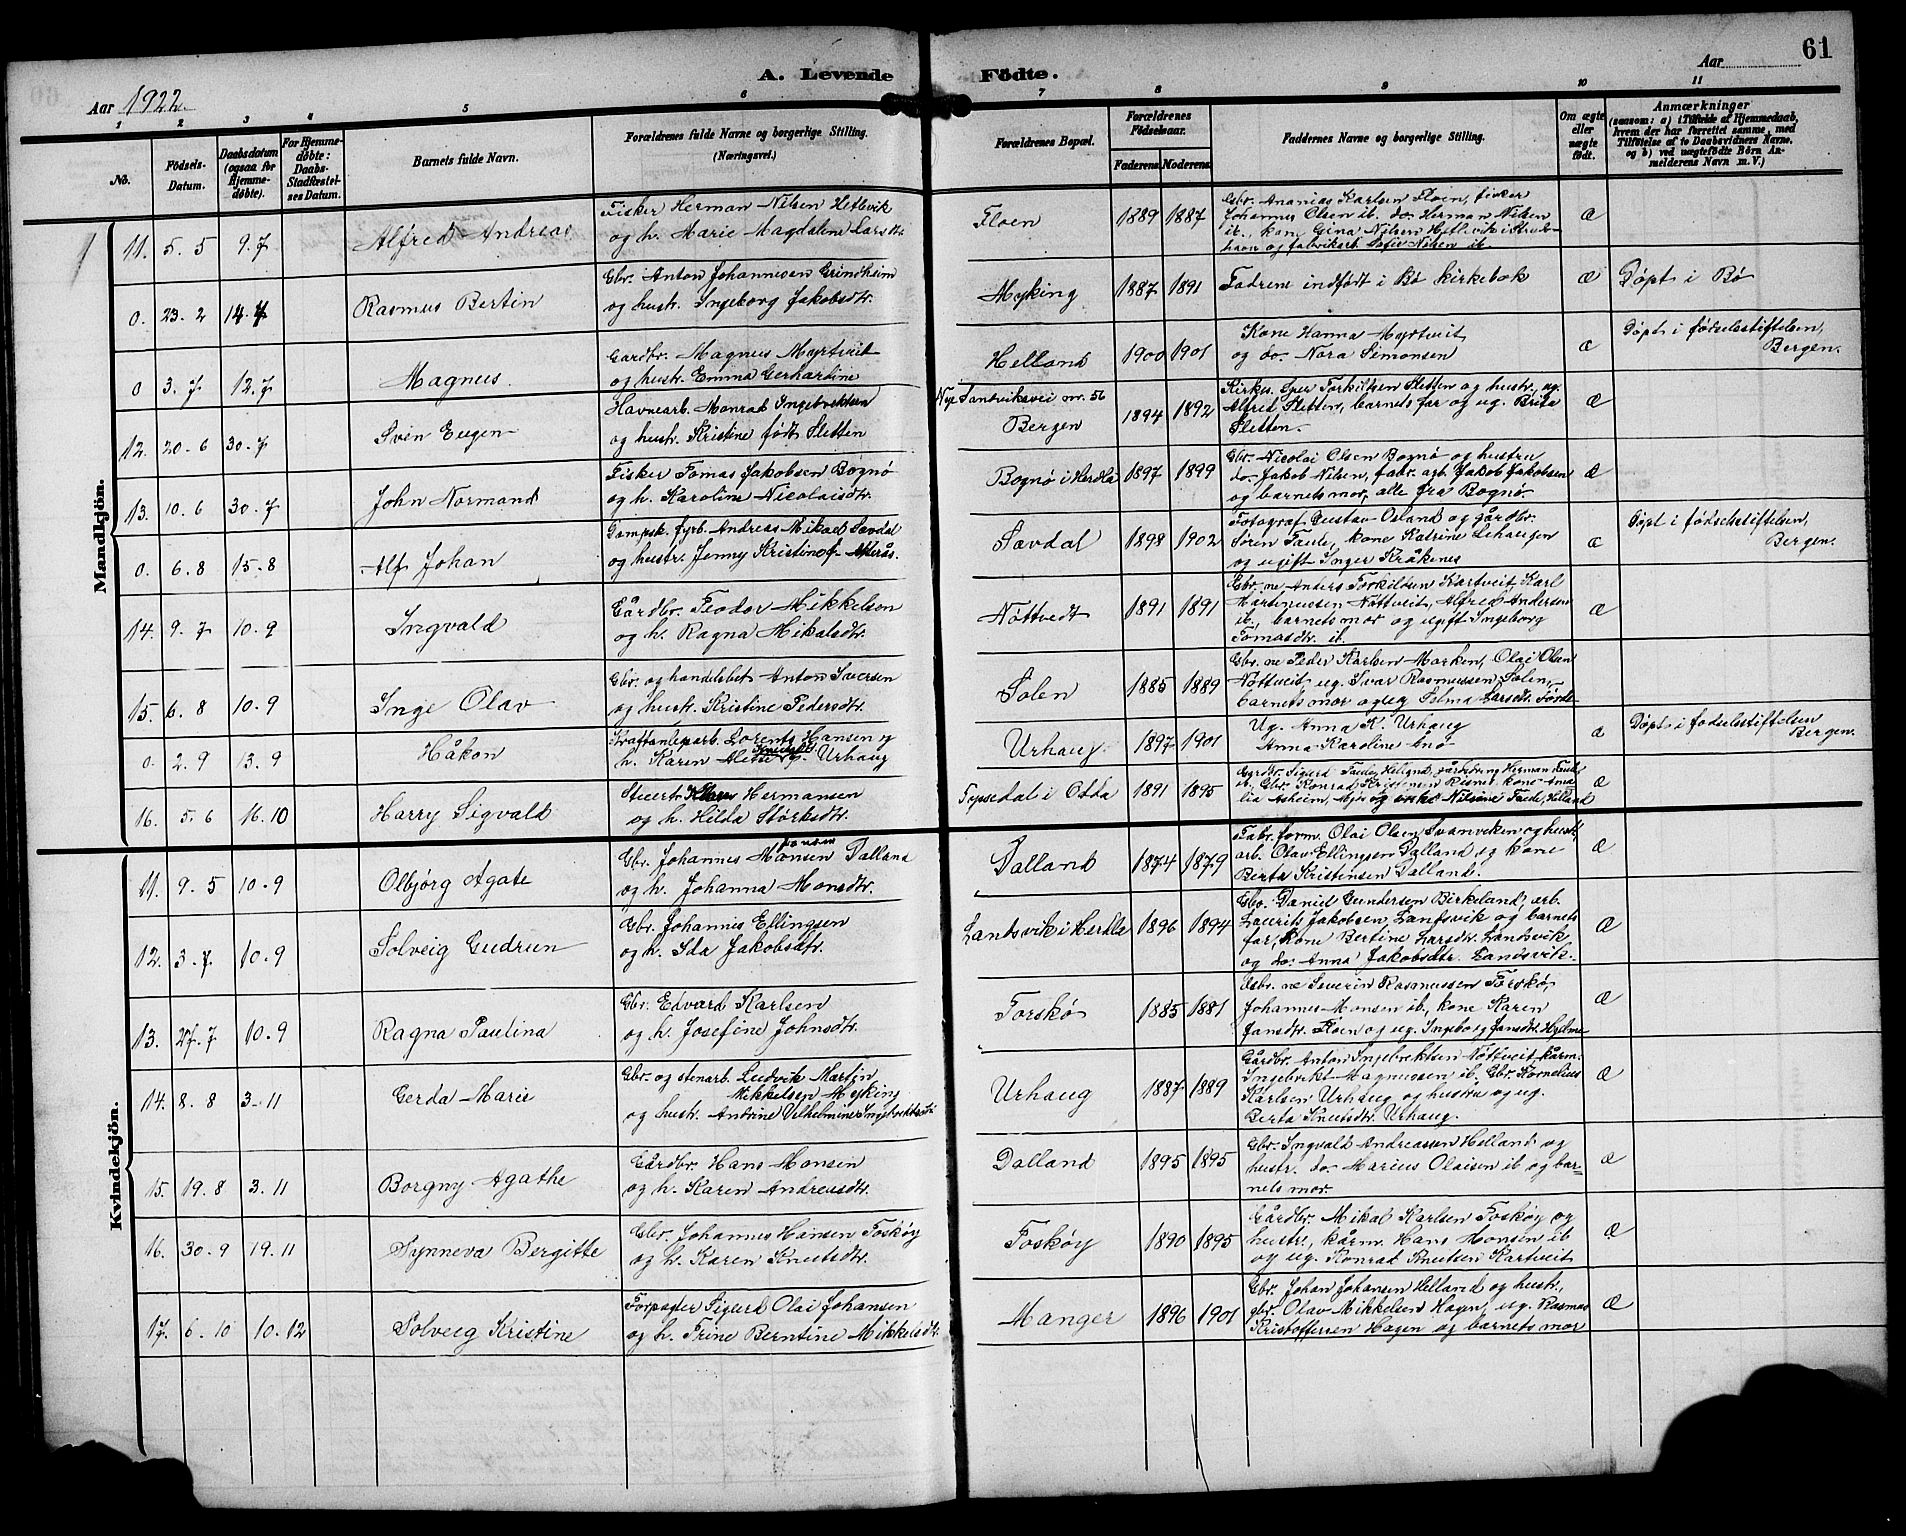 A. Levende Födte.
61
Aar 1922.
Aar
1 2 3 4 5 6 7 8 9 10 11
No.
Födsels-
Datum.
Daabsdatum
(ogsaa for
Hjemme-
döbte).
For Hjemme-
döbte:
Daabs-
Stadfæstel-
ses Datum.
Barnets fulde Navn.
Forældrenes fulde Navne og borgerlige Stilling.
(Næringsvei.)
Forældrenes Bopæl.
Forældrenes
Födselsaar.
Faderens. Moderens.
Faddernes Navne og borgerlige Stilling.
Om ægte
eller
uægte
født.
Anmærkninger
(saasom: a) i Tilfælde af Hjemmedaab,
hvem der har forrettet samme, med
Tilföielse af to Daabsvidners Navne,
og b) ved uægtefödte Börn An-
melderens Navn m. V.)
Mandkjön.
11. 5. 5 9. 7 Alfred Andreas
Fisker Herman Nilsen Hetlevik
og h. Marie Magdalene Larsdtr.
Floen 1889 1887
Gbr. Ananias Karlsen Floen, fisker
Johannes Olsen ib. do. Herman Nilsen
ib., kone Gina Nilsen Hetlevik i
og fabrikarb. Sofie Nilsen ib.
æ
0. 23. 2 14. 7 Rasmus Bertin
Gbr. Anton Johannesen Grindheim
og hustr. Ingeborg Jakobsdtr.
Myking 1887 1891
Fadrene indført i Bø kirkebok
æ Døpt i Bø
0 3. 7 12. 7 Magnus.
Gardbr. Magnus Myrtveit
og hustr. Emma Gerhardine
Helland 1900 1901
Kone Hanna Myrtveit
og do. Nora Simonsen
æ Døpt i fødselsstiftelsen,
Bergen.
12. 20. 6 30. 7 Svein Eugen
Havnearb. Monrad Ingebrektsen
og hustr. Kristine født Sletten
Nye Sandviksvei nr. 56
Bergen 1894 1892
Kirkes. Sjur Torkildsen Sletten og hustr., ug.
Alfred Sletten, barnets far og ug. Brita
Sletten.
æ
13. 10. 6 30. 7 John Normand
Fisker Tomas Jakobsen Bognø
og h. Karoline Nicolaisdtr.
Bognø i Herdla 1897 1899
Gbr. Nicolai Olsen Bognø og hustru
do. Jakob Nilsen, fabr. arb. Jakob Jakobsen
og barnets mor, alle fra Bognø.
æ
0. 6. 8 15. 8 Alf Johan
Dampsk. fyrb. Andreas Mikael Sævdal
og hustr. Jenny Kristine f. Asterås.
Sævdal 1898 1902
Fotograf Gustav Osland og gårdbr.
Søren Taule, kone Katrine Lihaugen
og ugift Inger Kråkenes
æ Døpt i fødselsstiftelsen,
Bergen.
14. 9. 7 10. 9 Ingvald
Gårdbr. Teodor Mikkelsen
og h. Ragna Mikalsdtr.
Nøttvedt 1891 1891
Gbr. ne Anders Torkildsen Kartveit, Karl
Martinussen Nøttveit, Alfred Andersen
ib., barnets mor og ugift Ingeborg
Tomasdtr. ib.
æ
15. 6. 8 10. 9 Inge Olav
Gbr. og handelsbet. Anton Sversen
og hustr. Kristine Pedersdtr.
Solen 1885 1889
Gbr. ne Peder Karlsen Marken, Olai Olsen
Nøttveit, ug. Ivar Rasmussen Solen,
barnets mor og ug. Selma Larsdtr. Førde
æ
0. 2. 9 13. 9 Håkon
Kraftanleparb. Lorents Hansen og
h. Karen Aletse Knudsdtr. Urhaug
Urhaug 1897 1901
Ug. Anna K. Urhaug
Anna Karoline
æ Døpt i fødselsstiftelsen
Bergen.
16. 5. 6 16. 10 Harry Sigvald
Stuert Hermansen
og h. Hilda Størksdtr.
Tyssedal i Odda 1891 1895
Gårdbr. Sigurd Taule, Helland, gårdsdreng Herman Taule
ib., Gbr. Konrad Kristensen Risnes, kone Ama-
lia Askeim, Mjøs og enke Nilsine Taule, Helland
æ
Kvindekjön.
11. 9. 5 10. 9 Olbjörg Agate
Gbr. Johannes Monsen Dalland
og h. Johanna Monsdtr.
Dalland 1874 1879
Fabr. form. Olai Olsen Svanviken og hustr.,
arb. Olav Ellingsen Dalland og kone
Berta Kristensen Dalland.
æ
12. 3. 7 10. 9 Solveig Gudrun
Gbr. Johannes Ellingsen
og h. Ida Jakobsdtr.
Landsvik i Herdla 1896 1894
Gbr. Daniel Gundersen Birkeland, arb.
Laurits Jakobsen, Landsvik og barnets
far, kone Bertine Larsdtr. Landsvik
og do. Anna Jakobsdtr. Landsvik.
æ
13. 27. 7 10. 9 Ragna Paulina
Gbr. Edvard Karlsen
og h. Josefine Johnsdtr.
Forskø 1885 1881
Gbr. ne Severin Rasmussen Forskø,
Johannes Monsen ib., kone Karen
Jansdtr. Floen og ug. Ingeborg Jansdtr. Hjelme
æ
14. 8. 8 3. 11 Gerda Marie
Gbr. og stenarb. Ludvik Martin
Mikkelsen Myking
og hustr. Andrine Vilhelmine Ingebrektsdtr.
Urhaug 1887 1889
Gårdbr. Anton Ingebrektsen Nøttveit, kårm.
Ingebrikt Magnussen ib., Gbr. Kornelius
Karlsen Urhaug og hustru og ug.
Berta Knutsdtr. Urhaug.
æ
15. 19. 8 3. 11 Borgny Agathe
Gårdbr. Hans Monsen
og h. Karen Andreasdtr.
Dalland 1895 1895
Gbr. Ingvald Andreassen Helland og
hustr. do. Marius Olaisen ib og bar-
nets mor.
æ
16. 30. 9 19. 11 Synneva Bergitte
Gbr. Johannes Hansen Foskøy
og h. Karen Knutsdtr.
Foskøy 1890 1895
Gårdbr. Mikal Karlsen Foskøy og
hustr., kårm. Hans Monsen ib
og ug. Konrad Knutsen Kartveit
æ
17. 6. 10 10. 12 Solveig Kristine
Forpagter Sigurd Olai Johansen
og h. Trine Berntine Mikkelsdtr.
Manger 1896 1901
Gbr. Johan Johansen Helland og hustr.,
gbr. Olav Mikkelsen Hagen, ug. Rasmus
Kristoffersen Hagen og barnets mor
æ